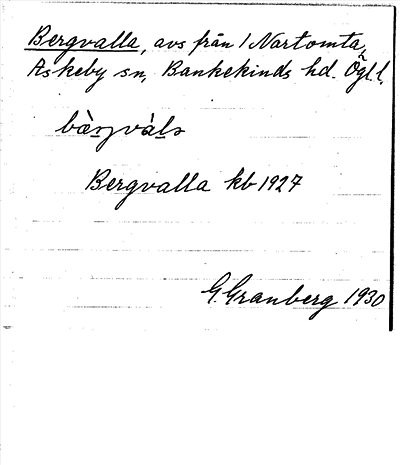 Bergvalla, avs från 1 Nartomta,
Askeby sn, Bankekinds hd. Ögl.l.
Bergvalla kb 1927
G. Granberg 1930